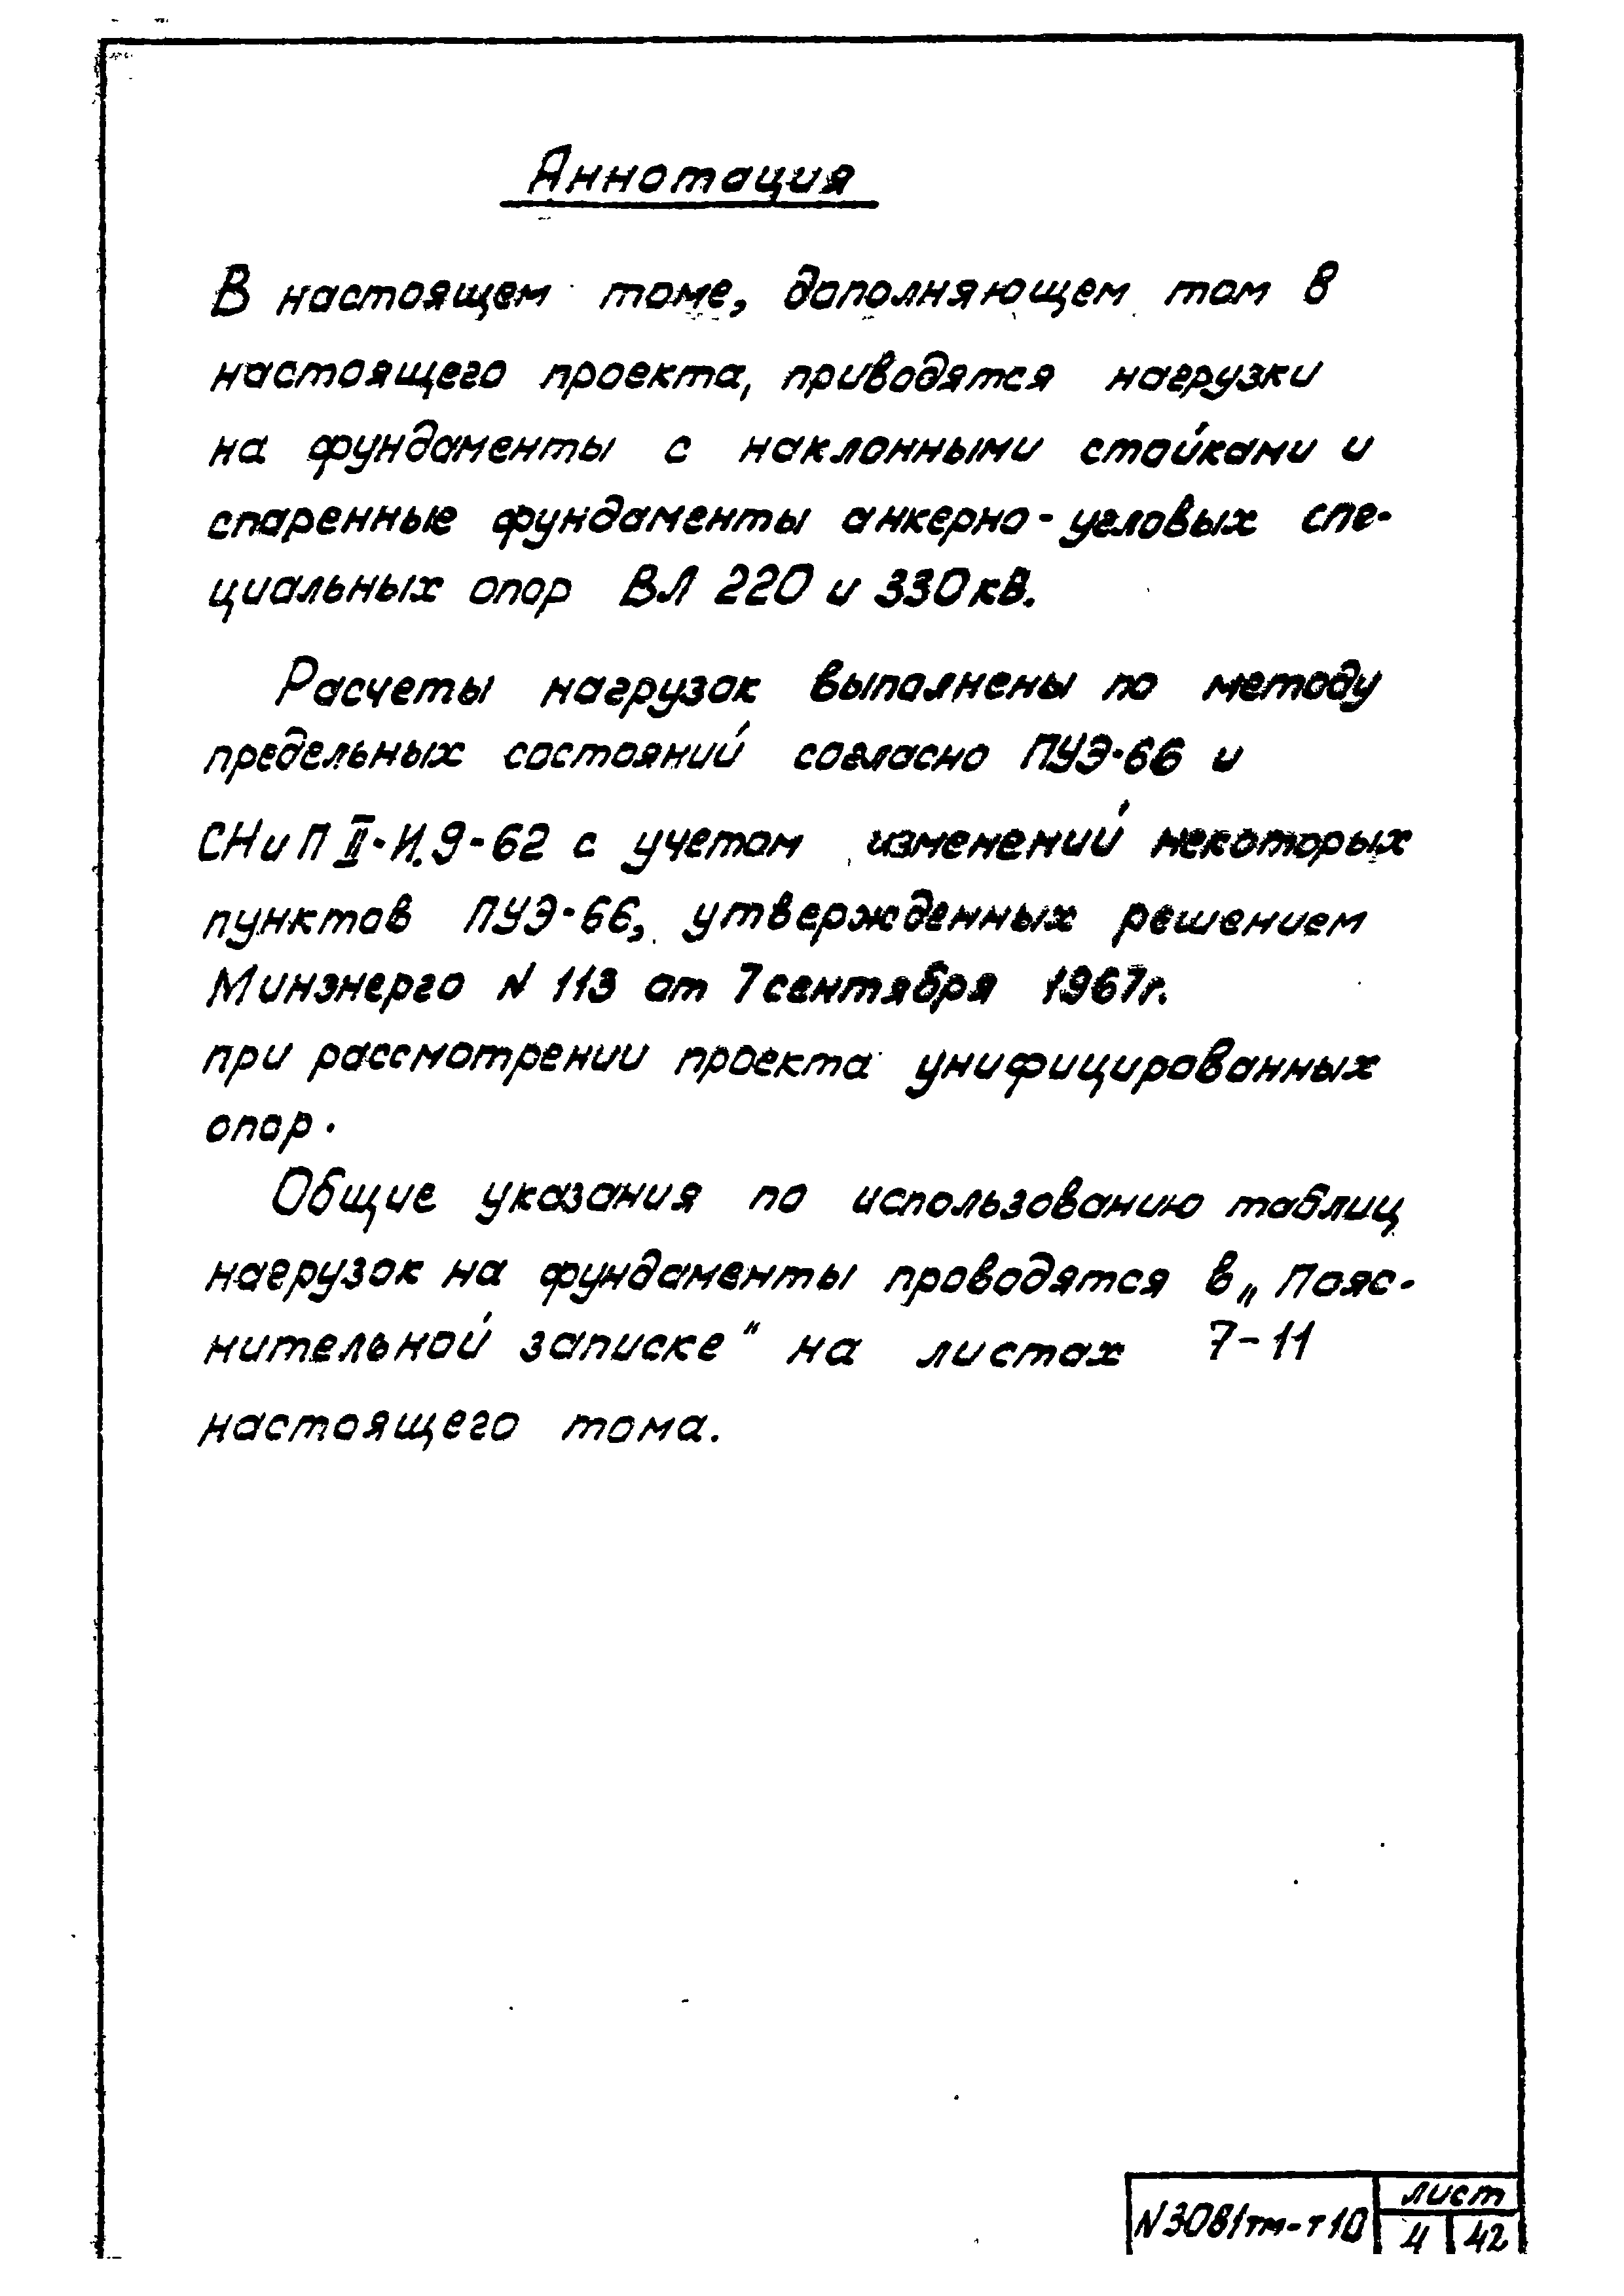 Аннотация
В настоящем томе, дополняющем том 8
настоящего проекта, приводятся нагрузки
на фундаменты с наклонными стойками и
спаренные фундаменты анкерно-угловых спе-
циальных опор ВЛ 220 и 330кВ.
Расчеты нагрузок выполнены по методу
предельных состояний согласно ПУЭ-66 и
СНиП II-И.9-62 с учетом изменений некоторых
пунктов ПУЭ-66, утвержденных решением
Минэнерго N 113 от 7 сентября 1967г.
при рассмотрении проекта унифицированных
опор.
Общие указания по использованию таблиц
нагрузок на фундаменты проводятся в „Пояс-
нительной записке" на листах 7-11
настоящего тома.
N3081тм-т10
лист
4 42